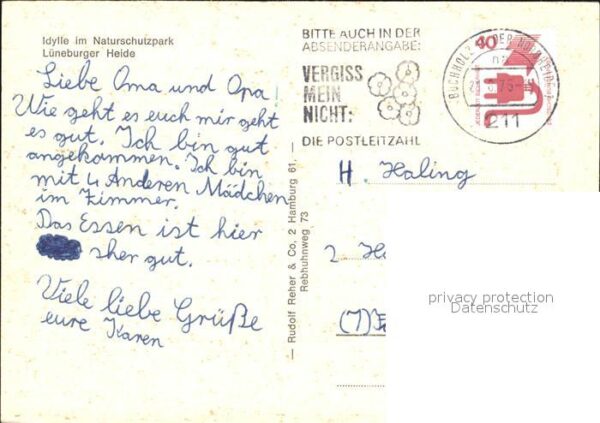 Idylle im Naturschutzpark
Lüneburger Heide
Liebe Oma und Opa!
Wie geht es euch mir geht
es gut. Ich bin gut
angekommen. Ich bin
mit 4 Anderen Mädchen
im Zimmer.
Das Essen ist hier
sher gut.
Viele liebe Grüße
eure Karen
— Rudolf Reher & Co. 2 Hamburg 61, —
Rebhuhnweg 73
BITTE AUCH IN DER
ABSENDERANGABE:
VERGISS
MEIN
NICHT:
DIE POSTLEITZAHL
BUCHHOLZ
211
40
H. Haling
2
(7)
privacy protection
Datenschutz